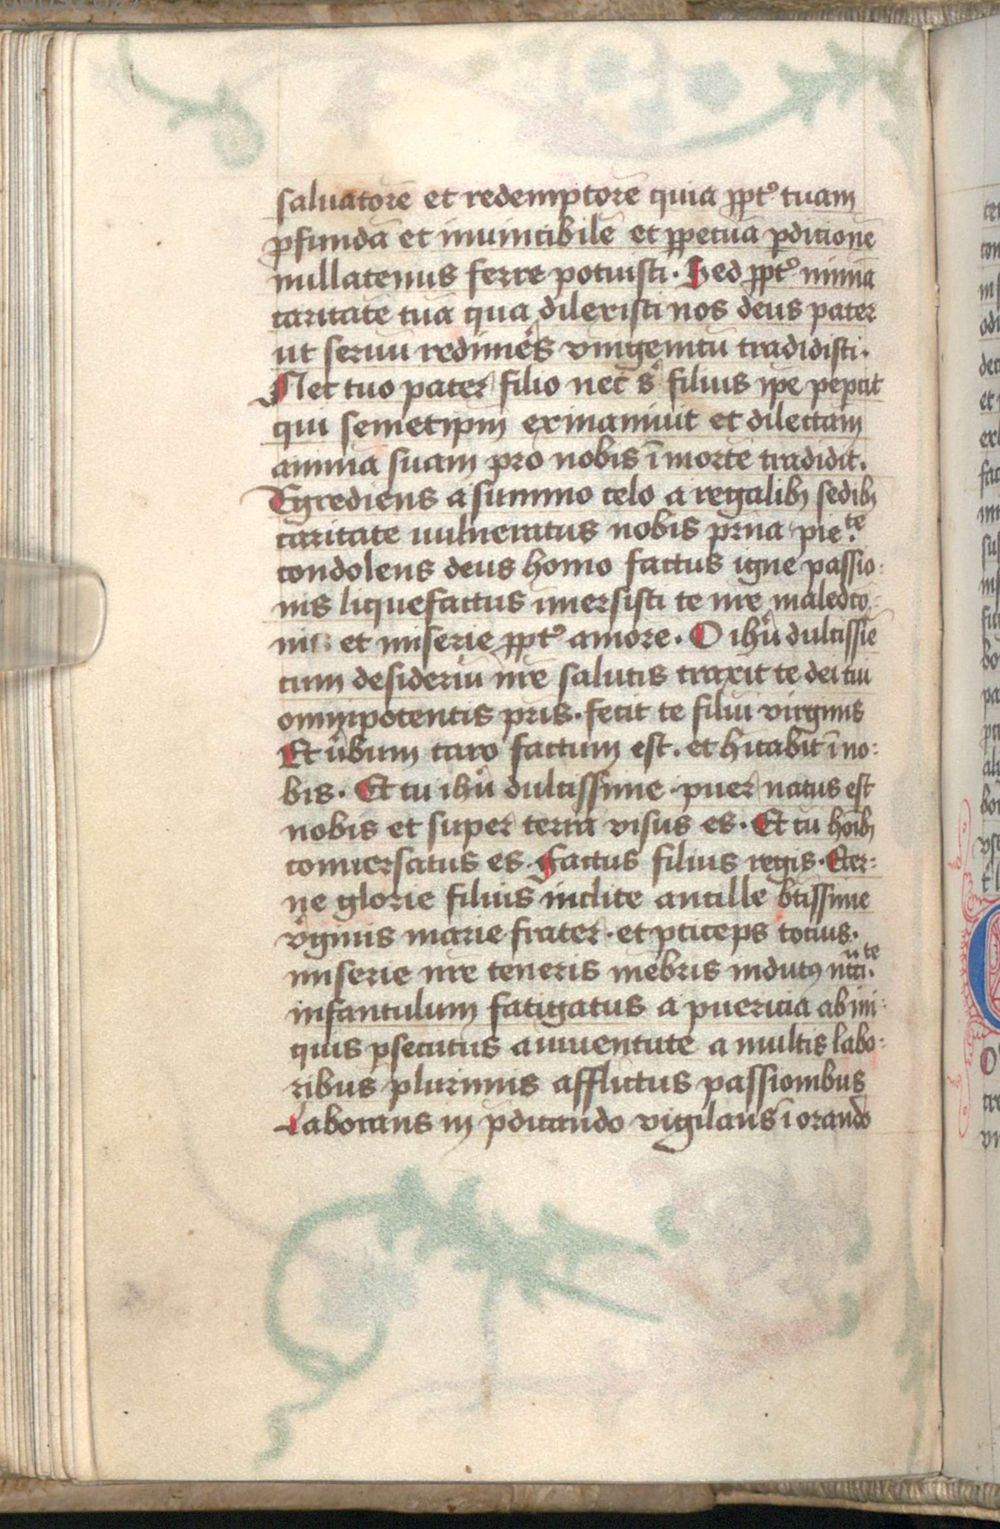 saluatorē et redemptorē quia ꝓpt᷒ tuam
ꝓfundā et inuincibilē et ꝑpetuā ꝑditionē
nullatenus ferre potuisti. Sed ꝓpt᷒ nimiā
caritatē tuā qua dilexisti nos deus pater
ut seruū redimēs vnigenitū tradidisti.
Nec tuo pater filio nec s᷒ filius ipe pepcit
qui semetipm exinaniuit et dilectam
animā suam pro nobis ī mortē tradidit.
Egrediens a summo celo a regalibꝫ sedibꝫ
caritate uulneratus nobis prna pie.te
condolens deus homo factus igne passio:
nis liquefactus īmersisti te nrē maledcō
nis et miserie ꝓpt᷒ amore. O ihū dulcissīe
cum desideriū nrē salutis traxit te dei tui
omnipotentis pris. fecit te filiū virginis
Et ūbum caro factum est. et hitabit ī no:
bis. Et tu ihū dulcissime puer natus est
nobis et super terrā visus es. Et cū hoībꝫ
conuersatus es. Factus filius regis. Eter:
ne glorie filius inclite ancille btissime
v̄ginis marie frater. et ꝑticeps totius.
miserie nrē teneris mēbris indutꝰ
infantulum fatigatus a puericia ab ini:
quis ꝑsecutus a iuuentute a multis labo:
ribus plurimis afflictus passionibus
Laborans in p̄dicando vigilans ī orando